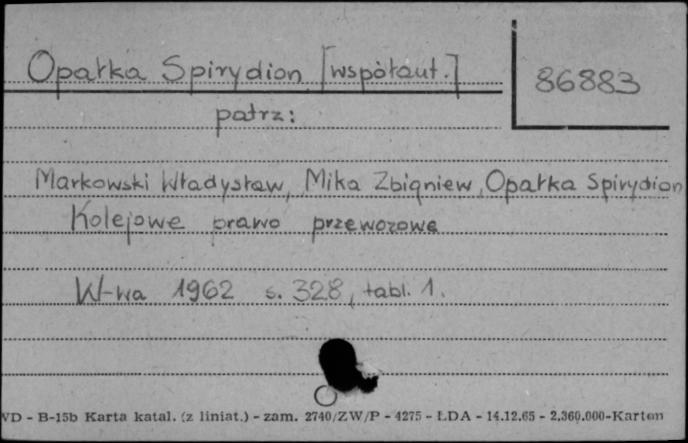 Opałka Spirydion [współaut.]
86883
patrz:
Markowski Władysław, Mika Zbigniew, Opałka Spirydion
Kolejowe prawo przewozowe
W-wa 1962 s. 328, tabl. 1.
VD - B-15b Karta katal. (z liniat.) - zam. 2740/ZW/P - 4275 - ŁDA - 14.12.65 - 2.360.000-Karton